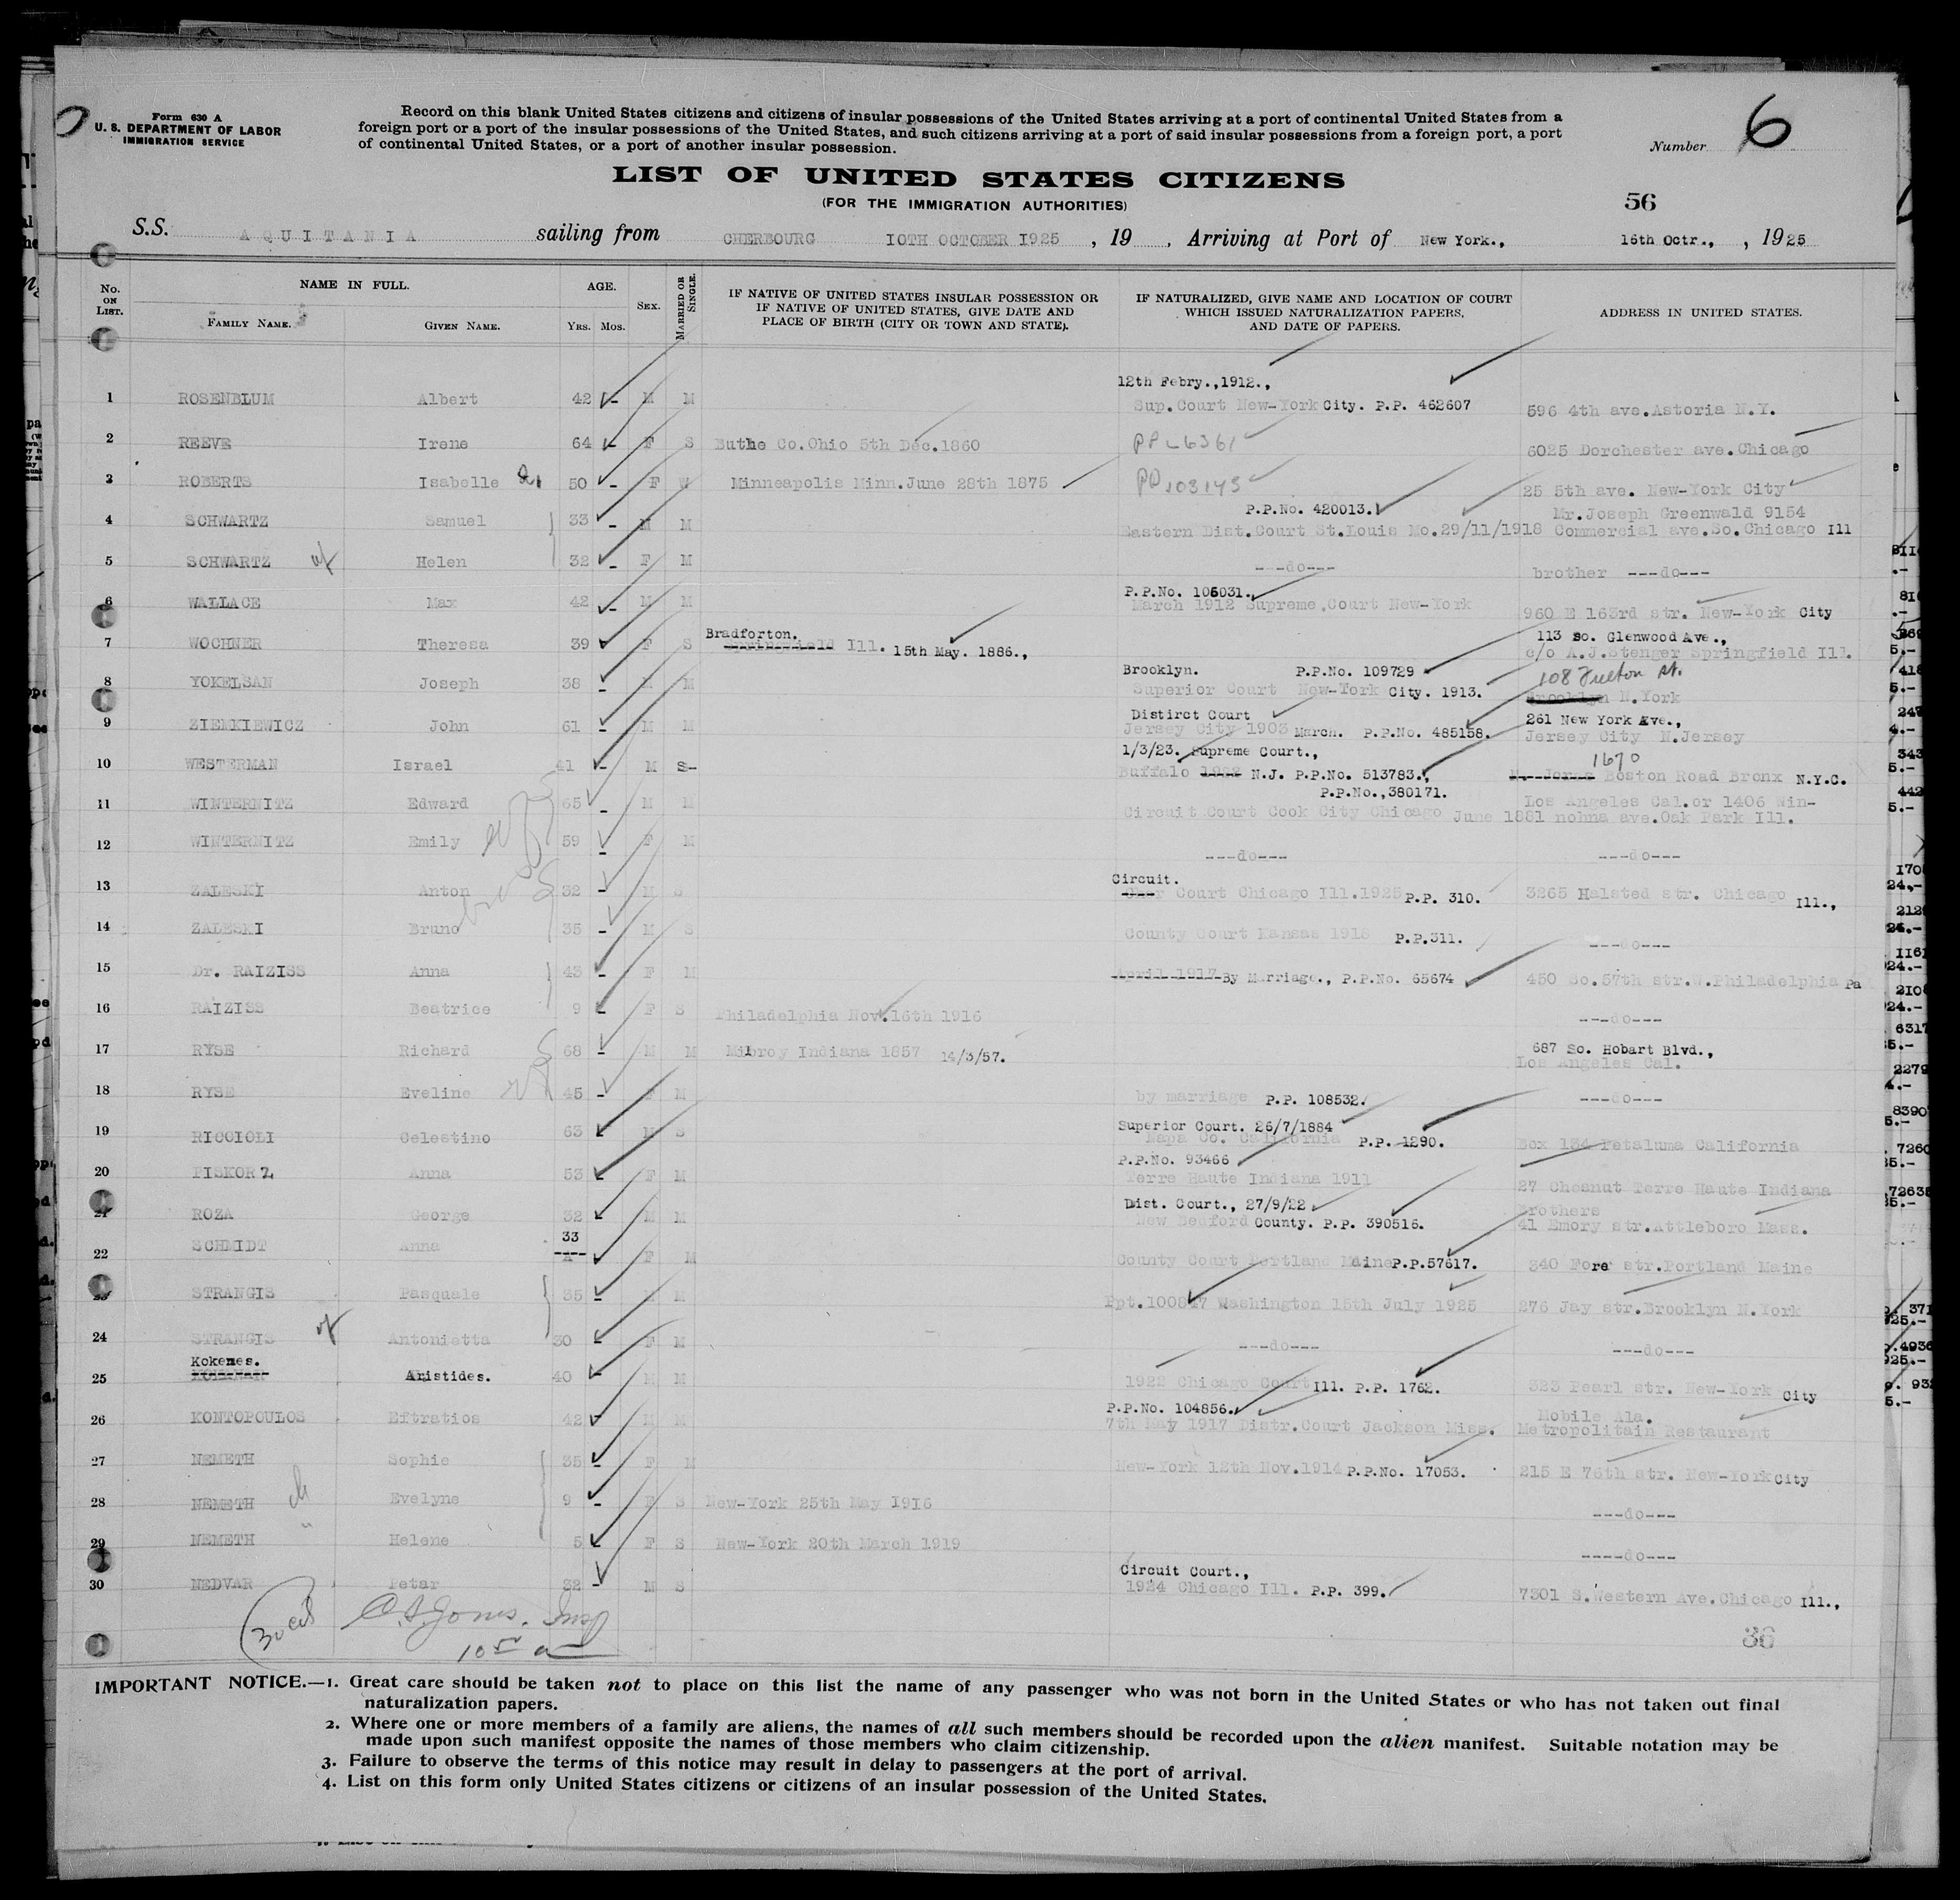 Form 630 A
U. S. DEPARTMENT OF LABOR
IMMIGRATION SERVICE
Record on this blank United States citizens and citizens of insular possessions of the United States arriving at a port of continental United States from a
foreign port or a port of the insular possessions of the United States, and such citizens arriving at a port of said insular possessions from a foreign port, a port
of continental United States, or a port of another insular possession.
Number 6
LIST OF UNITED STATES CITIZENS
(FOR THE IMMIGRATION AUTHORITIES)
56
S.S. AQUITANIA sailing from CHERBOURG 10TH OCTOBER 1925 , 19 , Arriving at Port of New York., 16th Octr., , 1925
No. ON LIST. NAME IN FULL. FAMILY NAME. GIVEN NAME. AGE. YRS. MOS. SEX. MARRIED OR SINGLE.
IF NATIVE OF UNITED STATES INSULAR POSSESSION OR IF NATIVE OF UNITED STATES, GIVE DATE AND PLACE OF BIRTH (CITY OR TOWN AND STATE).
IF NATURALIZED, GIVE NAME AND LOCATION OF COURT WHICH ISSUED NATURALIZATION PAPERS, AND DATE OF PAPERS.
ADDRESS IN UNITED STATES.
12th Febry.,1912.,
1 ROSENBLUM Albert 42 - M M Sup.Court New-York City. P.P. 462607 596 4th ave.Astoria N.Y.
2 REEVE Irene 64 - F S Buthe Co.Ohio 5th Dec.1860 PP 26361 6025 Dorchester ave.Chicago
3 ROBERTS Isabelle 50 - F W Minneapolis Minn.June 28th 1875 PP 103143 25 5th ave. New-York City
P.P.No. 420013. Mr.Joseph Greenwald 9154
4 SCHWARTZ Samuel 33 - M M Eastern Dist.Court St.Louis Mo.29/11/1918 Commercial ave.So.Chicago Ill
5 SCHWARTZ wf Helen 32 - F M ---do--- brother ---do---
P.P.No. 106031.
6 WALLACE Max 42 - M M March 1912 Supreme.Court New-York 960 E 163rd str. New-York City
Bradforton. 113 So. Glenwood Ave.,
7 WOCHNER Theresa 39 F S Springfield Ill. 15th May. 1886., c/o A.J.Stenger Springfield Ill.
Brooklyn. P.P.No. 109729 108 Fulton St.
8 YOKELSAN Joseph 38 - M M Superior Court New-York City. 1913. Brooklyn N.York
Distirct Court 261 New York Ave.,
9 ZIENKIEWICZ John 61 - M M Jersey City 1903 March. P.P.No. 485158. Jersey City N.Jersey
1/3/23. Supreme Court., 1670
10 WESTERMAN Israel 41 - M S- Buffalo N.J. P.P.No. 513783., Boston Road Bronx N.Y.C.
P.P.No.,380171. Los Angeles Cal.or 1406 Win-
11 WINTERNITZ Edward 65 - M M Circuit Court Cook City Chicago June 1881 nohna ave.Oak Park Ill.
12 WINTERNITZ Emily wf 59 - F M ---do--- ---do---
Circuit.
13 ZALESKI Anton 32 - M S Court Chicago Ill.1925 P.P. 310. 3265 Halsted str. Chicago Ill.,
14 ZALESKI Bruno 35 - M S County Court Kansas 1918 P.P.311. ---do---
15 Dr. RAIZISS Anna 43 - F M April 1917 By Marriage., P.P.No. 65674 450 So.57th str.W.Philadelphia Pa
16 RAIZISS Beatrice 9 - F S Philadelphia Nov.16th 1916 ---do---
687 So. Hobart Blvd.,
17 RYSE Richard 68 - M M Milroy Indiana 1857 14/3/57. Los Angeles Cal.
18 RYSE Eveline 45 - F M by marriage P.P. 108532. ---do---
Superior Court. 26/7/1884
19 RICCIOLI Celestino 63 M S Napa Co. California P.P. 1290. Box 134 Petaluma California
P.P.No. 93466
20 PISKORZ Anna 53 F M Terre Haute Indiana 1911 27 Chesnut Terre Haute Indiana
Dist. Court., 27/9/22 Brothers
21 ROZA George 32 M M New Bedford County. P.P. 390515. 41 Emory str.Attleboro Mass.
33
22 SCHMIDT Anna F M County Court Portland Maine P.P.57617. 340 Fore str.Portland Maine
23 STRANGIS Pasquale 35 - M M Ppt.100847 Washington 15th July 1925 276 Jay str.Brooklyn N.York
24 STRANGIS wf Antonietta 30 - F M ---do--- ---do---
Kokenes.
25 Aristides. 40 - M M 1922 Chicago Court Ill. P.P. 1762. 323 Pearl str. New-York City
P.P.No. 104856. Mobile Ala.
26 KONTOPOULOS Eftratios 42 M M 7th May 1917 Distr.Court Jackson Miss. Metropolitain Restaurant
27 NEMETH Sophie 35 - F M New-York 12th Nov.1914 P.P.No. 17053. 215 E 75th str. New-York City
28 NEMETH ch Evelyne 9 - F S New-York 25th May 1916 ---do---
29 NEMETH " Helene 5 - F S New-York 20th March 1919 ----do---
Circuit Court.,
30 NEDVAR Petar 32 - M S 1924 Chicago Ill. P.P. 399. 7301 S.Western Ave.Chicago Ill.,
30 cit Jones. Insp
36
IMPORTANT NOTICE.—1. Great care should be taken not to place on this list the name of any passenger who was not born in the United States or who has not taken out final
naturalization papers.
2. Where one or more members of a family are aliens, the names of all such members should be recorded upon the alien manifest. Suitable notation may be
made upon such manifest opposite the names of those members who claim citizenship.
3. Failure to observe the terms of this notice may result in delay to passengers at the port of arrival.
4. List on this form only United States citizens or citizens of an insular possession of the United States.